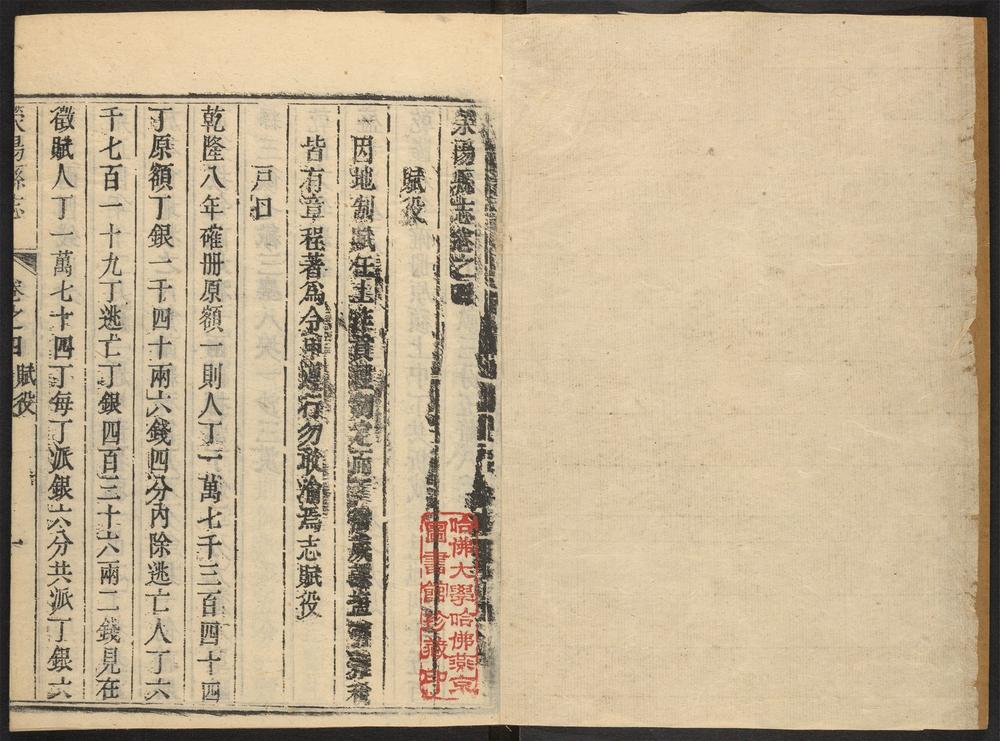 滎陽縣志卷之四
賦役
因地制賦任土作貢體國定而
皆有章程著為令甲遵行勿敢渝焉志賦役
戸口
乾隆八年確册原額一則人丁一萬七千三百四十四
丁原額丁銀一千四十兩六錢四分內除逃亡人丁六
千七百一十九丁逃亡丁銀四百三十六兩二錢見在
徵賦人丁一萬七十四丁每丁派銀六分共派丁銀六
滎陽縣志
卷之四賦役
一
哈佛大學哈佛燕京
圖書館珍藏印